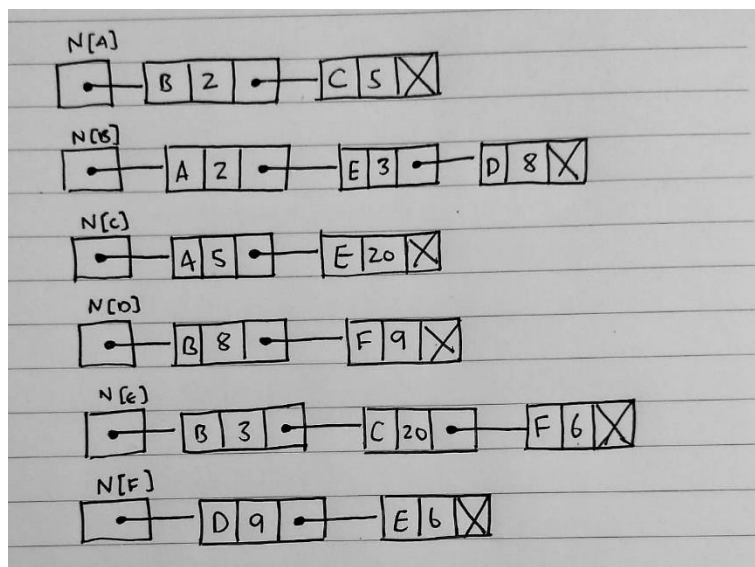 N[A]
B 2 C 5
N[B]
A 2 E 3 D 8
N[C]
A 5 E 20
N[D]
B 8 F 9
N[E]
B 3 C 20 F 6
N[F]
D 9 E 6